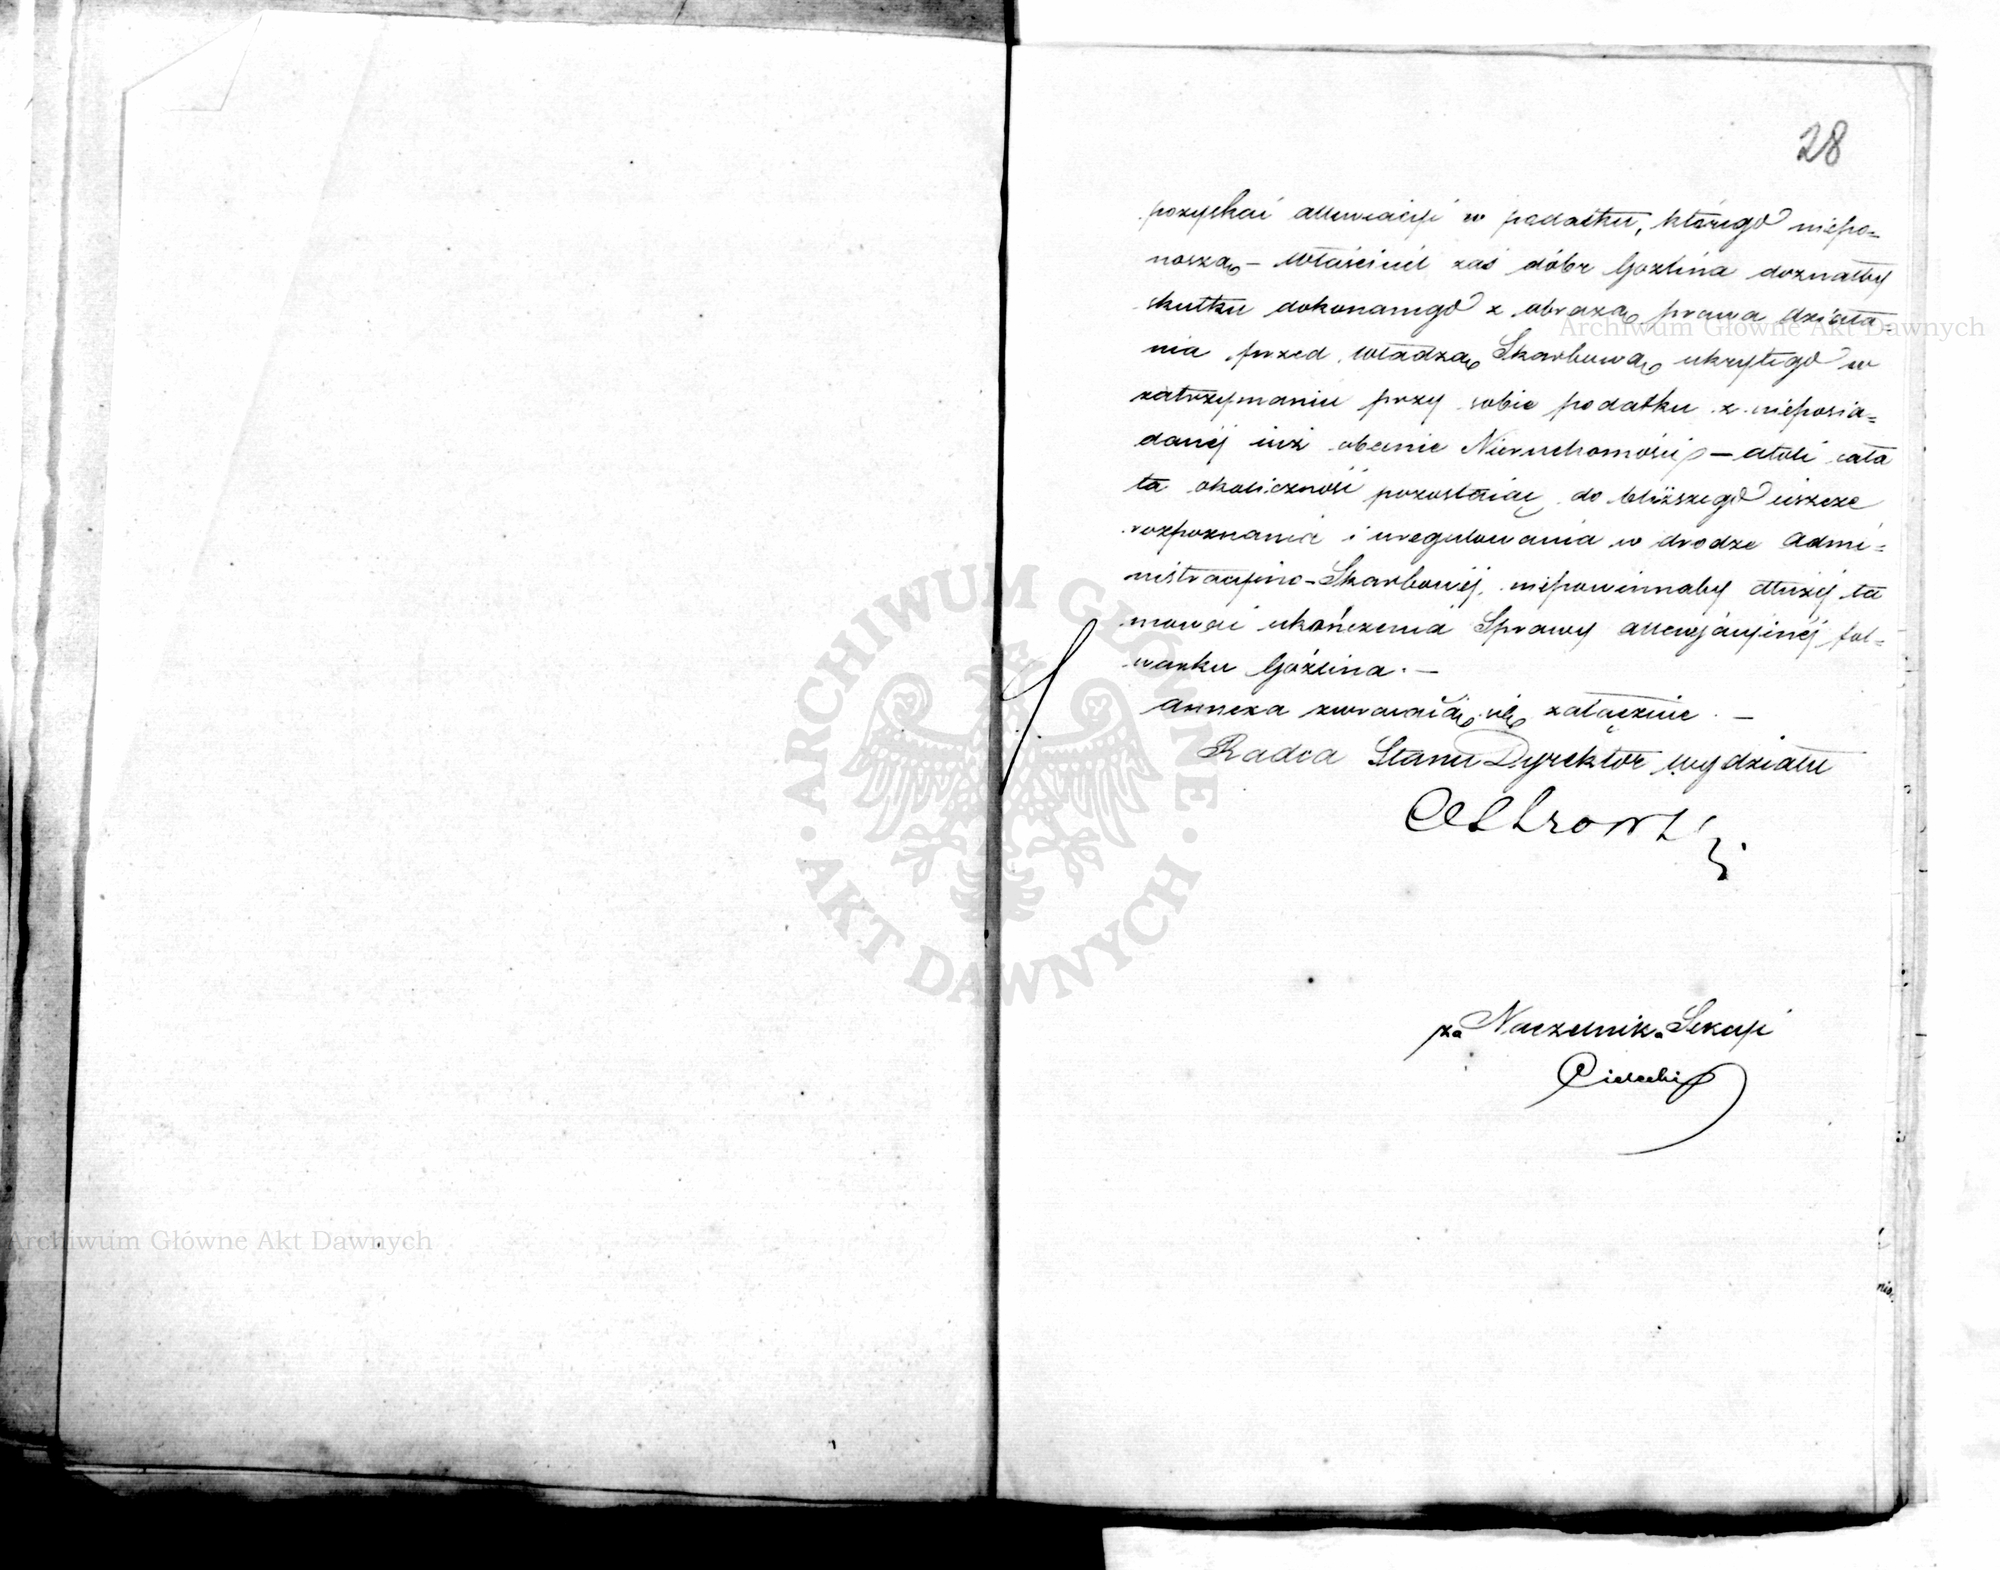 28
pozyskać allewiacyi w podatku, którego niepo=
noszą – właściciel zaś dóbr Goźlina doznałby
skutku dokonanego z obrazą prawa działa=
Archiwum Główne Akt Dawnych
nia przed władzą Skarbową ukrytego w
zatrzymaniu przy sobie podatku z nieposia=
danéj iuż obecnie Nieruchomości – atoli cała
ta okoliczność pozostaiąc do bliższego ieszcze
rozpoznania i uregulowania w drodze Admi=
nistracyino-Skarbowéj, niepowinnaby dłużéj ta
mować ukończenia Sprawy allewjacyinéj fol=
warku Goźlina. –
Annexa zwracaią się załącznie. –
Radca Stanu Dyrektor wydziału
ARCHIWUM GŁÓWNE
· AKT DAWNYCH ·
za Naczelnika Sekcyi
Archiwum Główne Akt Dawnych